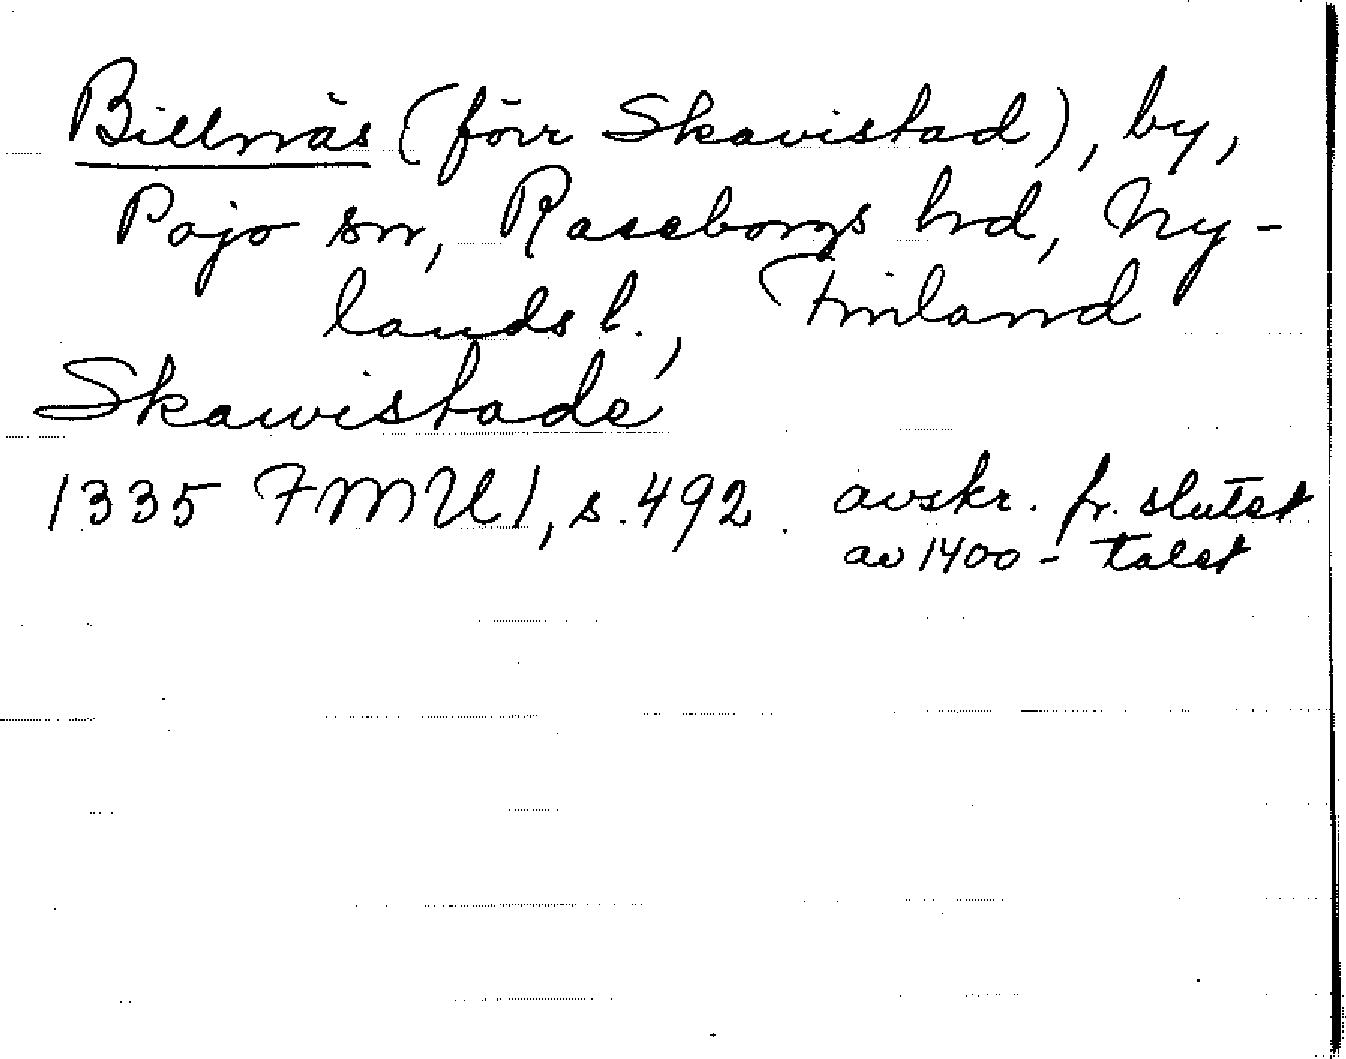 Billnäs (förr Skavistad), by,
Pojo sn, Raseborgs hrd, Ny-
lands l., Finland
Skawistade
1335 FMU 1, s. 492. avskr. fr. slutet
av 1400-talet